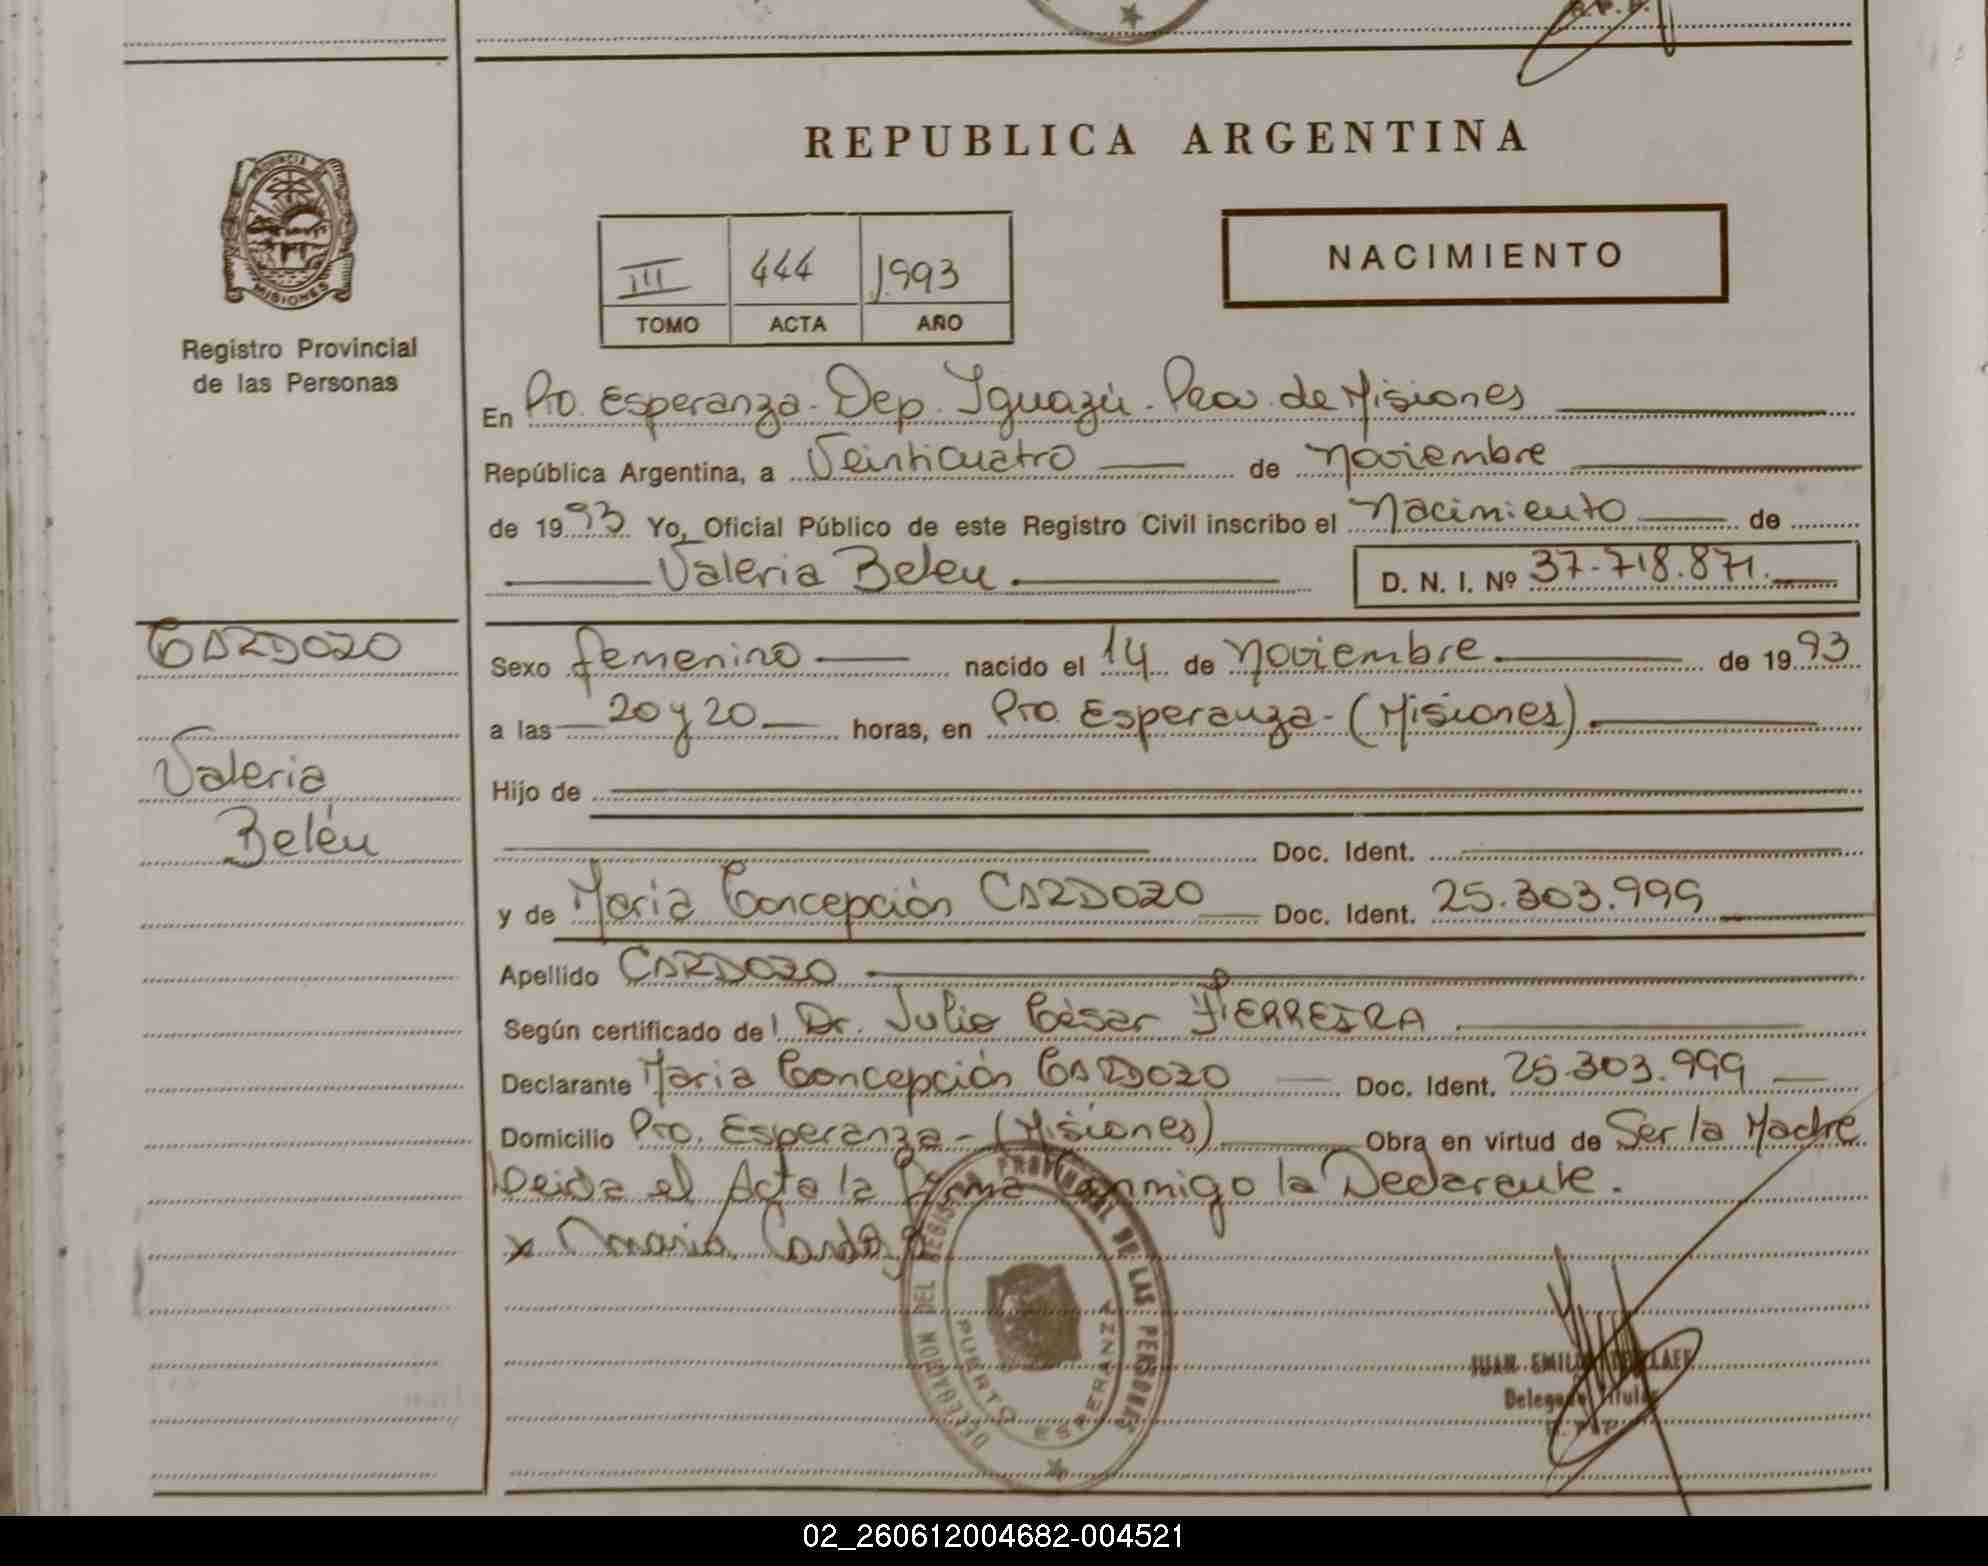 REPUBLICA ARGENTINA
PROVINCIA DE MISIONES
Registro Provincial
de las Personas
III 444 1993
TOMO ACTA AÑO
NACIMIENTO
En Pto. Esperanza - Dep. Iguazú - Prov. de Misiones
República Argentina, a Veinticuatro de Noviembre
de 1993 Yo, Oficial Público de este Registro Civil inscribo el Nacimiento de
Valeria Belen D. N. I. Nº 37.718.871.
CARDOZO
Valeria
Belén
Sexo femenino nacido el 14 de Noviembre de 1993
a las 20 y 20 horas, en Pto. Esperanza - (Misiones).
Hijo de
Doc. Ident.
y de Maria Concepción CARDOZO Doc. Ident. 25.303.999
Apellido CARDOZO
Según certificado del Dr. Julio César FIERREIRA
Declarante Maria Concepción CARDOZO Doc. Ident. 25.303.999
Domicilio Pto. Esperanza - (Misiones) Obra en virtud de Ser la Madre
Leida el Acta la Firma conmigo la Declarante.
x Maria Cardozo
DELEGACION DEL REGISTRO PROVINCIAL DE LAS PERSONAS
PUERTO ESPERANZA
JUAN EMILIO
Delegado Titular
R.P.P.
02_260612004682-004521